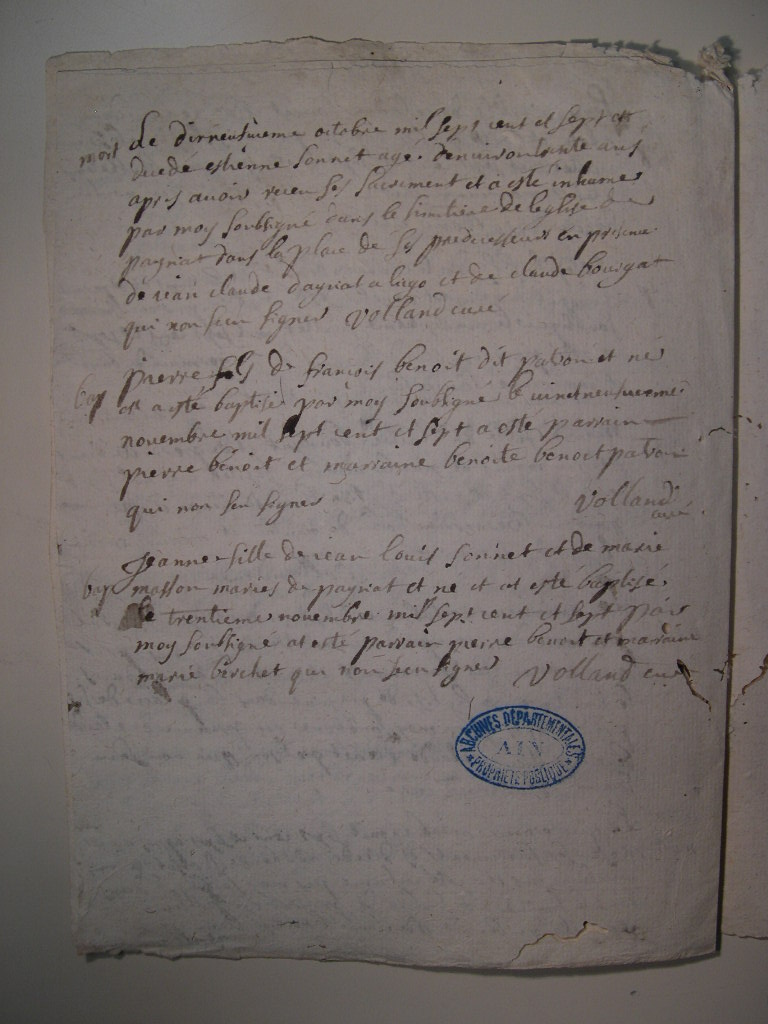 mort Le dixneufvieme octobre mil sept cent et sept est
decédé estienne sonnet agé denviron trante ans
apres avoir receu ses sacrement et a esté inhumé
par moy soubsigné dans le simitiere de leglise de
payriat dans la place de ses predecesseurs en presence
de jean claude dagniat et de claude bourgat
qui non sceu signer Volland curé
bap pierre fils de francois benoit dit patron et né
et a esté baptisé par moy soubsigné le vinctneufvieme
novembre mil sept cent et sept a esté parrain
pierre benoit et marraine benoite benoit patron
qui non seu signer Volland
curé
Jeanne fille de jean louis sonnet et de marie
bap masson mariés de payriat et ne et at esté baptisé
le trentieme novembre mil sept cent et sept par
moy soubsigné at esté parrain pierre benoit et marraine
marie berchet qui non sceu signer Volland curé
ARCHIVES DÉPARTEMENTALES
AIN
PROPRIÉTÉ PUBLIQUE